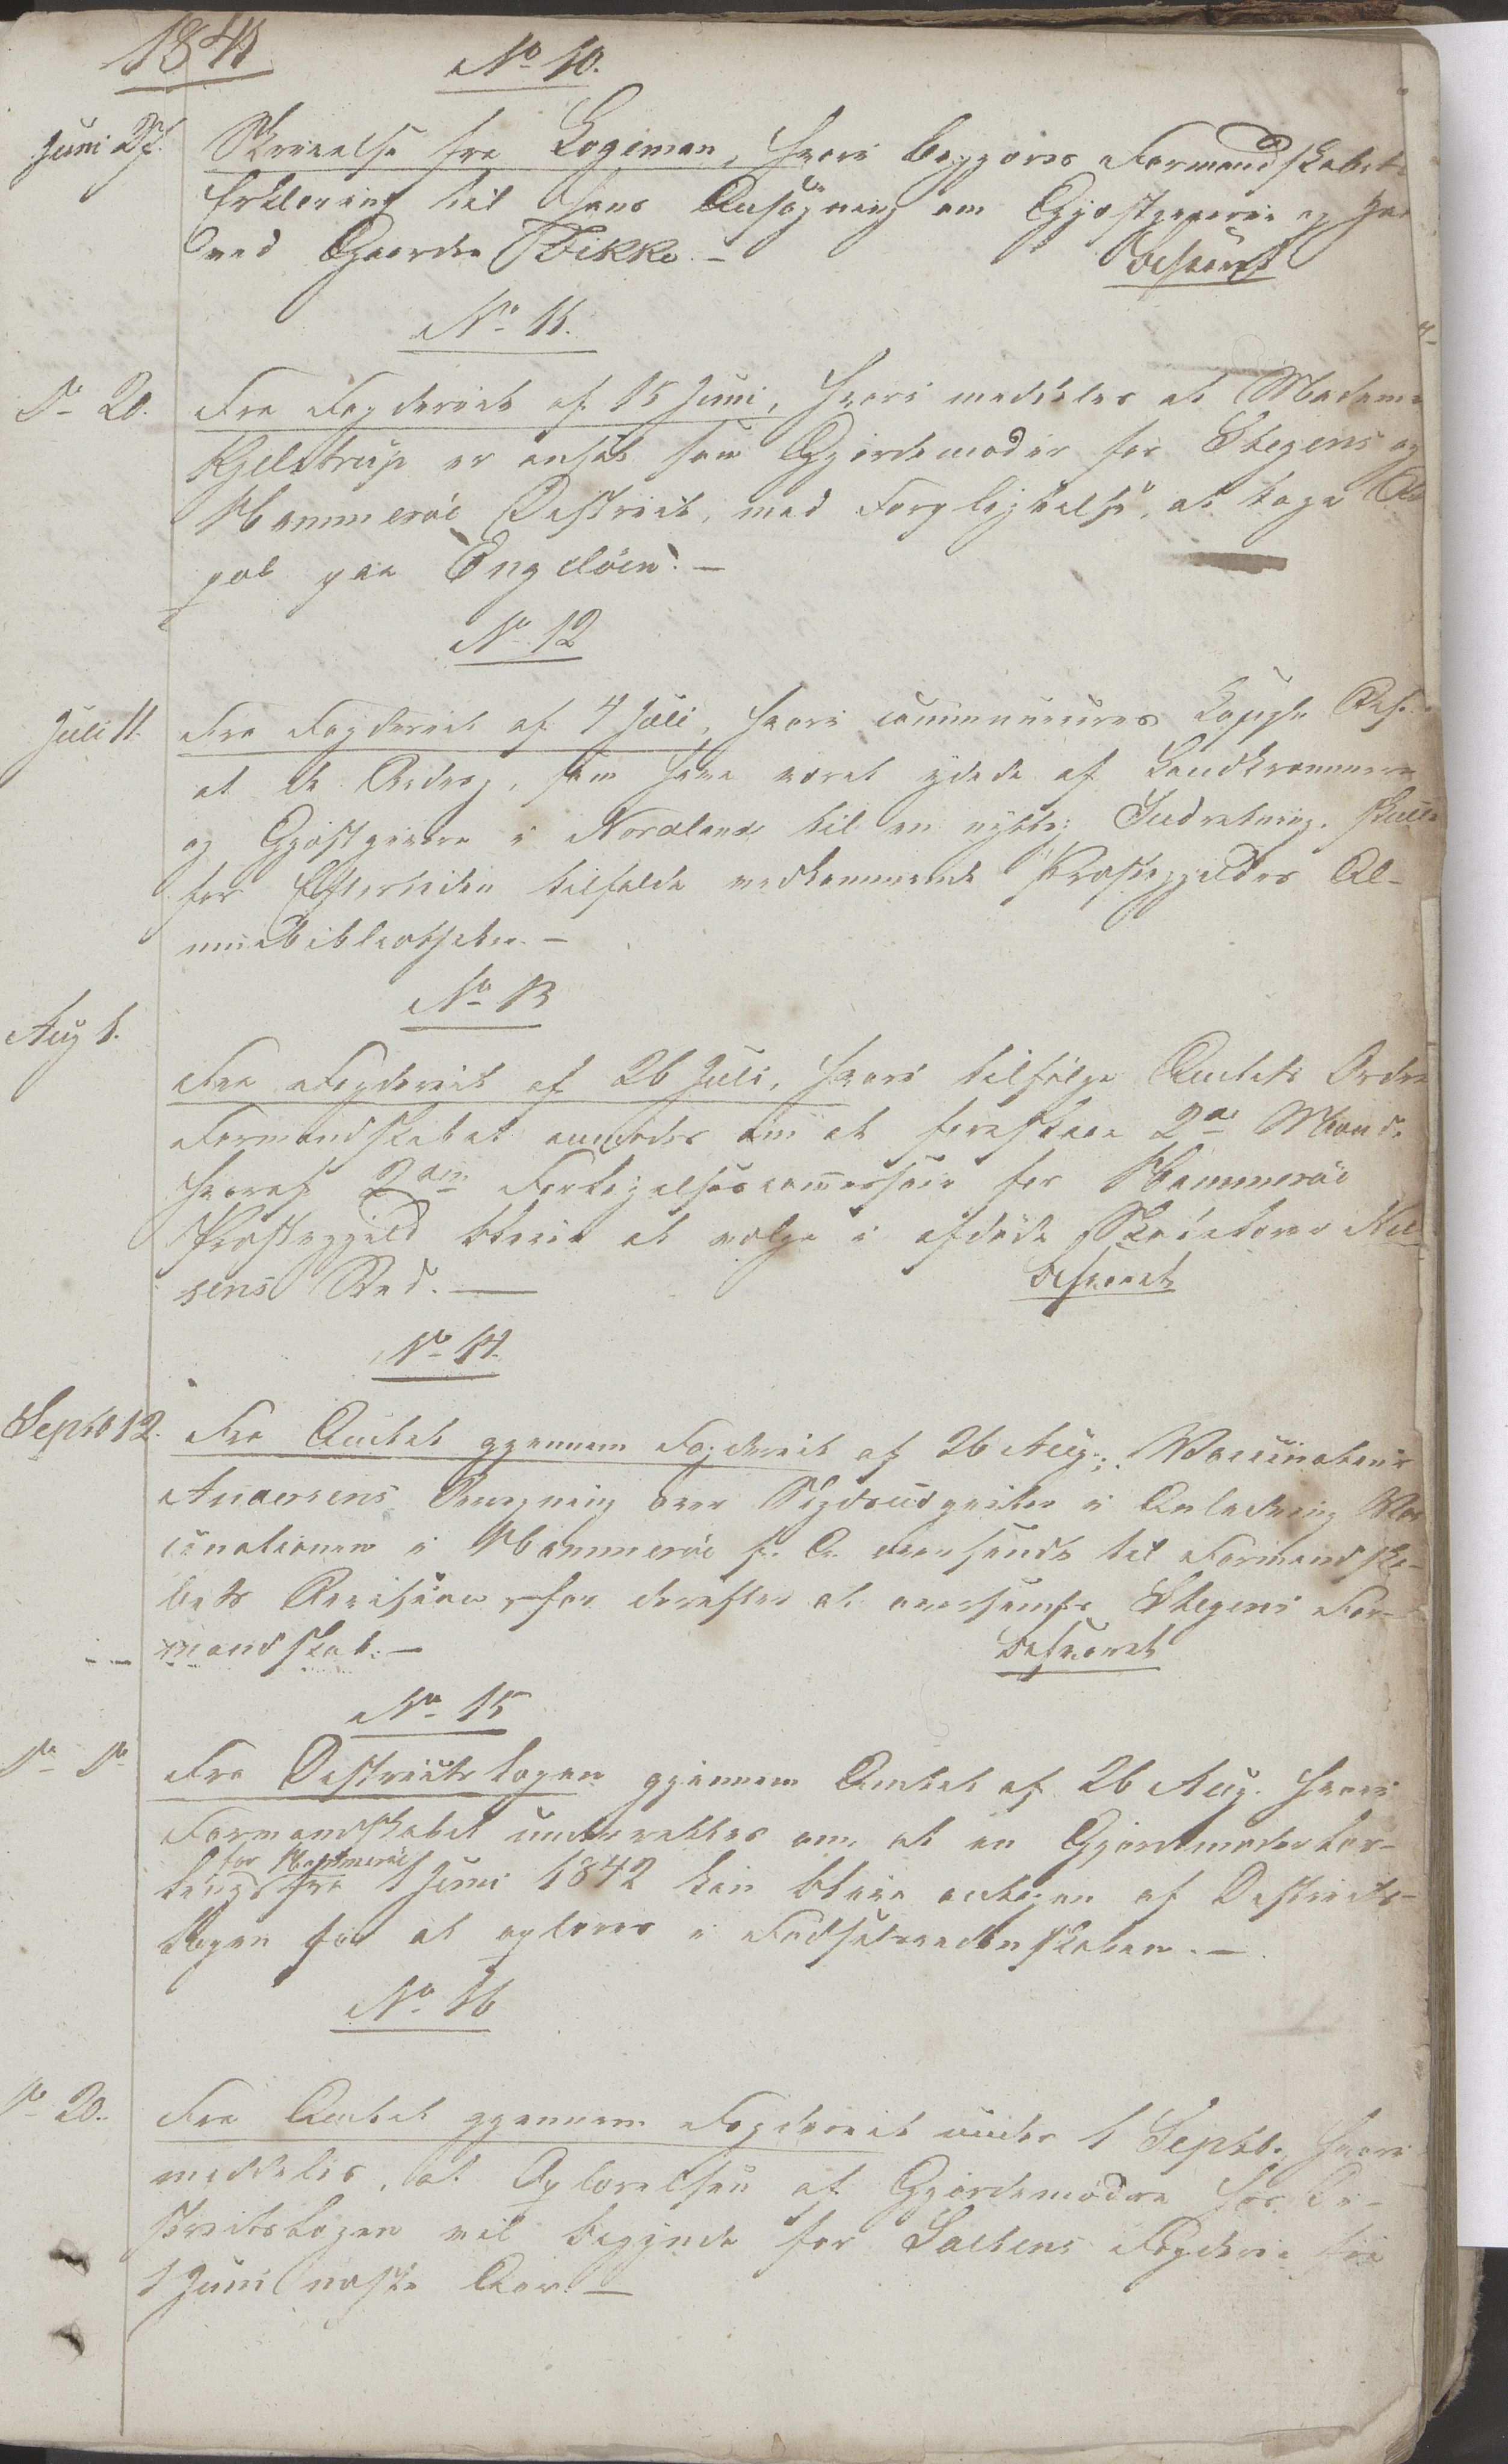 1841
No 10.
Juni 27. Skrivelse fra Logeman, hvori begjæres Formandskabets
Erklæring til hans Ansøgning om Gjæstgiverie og
ved Gaarden Fikke. - Besvaret
No 11.
Do 20. Fra Fogderiet af 15 Juni, hvori meddeles at Madame
Kjelstrup er ansat som Gjordemoder for Stegens og
Hammerøe District, med Forpligtelse, at tage Bo
pæl paa Engeløen. -
No 12
Juli 11. Fra Fogderiet af 4 Juli, hvori communiceres Kongl. Res.
at de Bidrag, som have været ydede af Landkræmmere
og Gjæstgivere i Nordland til en nyttig Indretning, skulle
for Eftertiden tilfalde vedkommende Præstegjelds Al-
muebibliotheker. -
No 13
Aug 1.
Fra Fogderiet af 26 Juli, hvori tilfølge Amtets Ordre
Formandskabet anmodes om at foreslaae 2de Mænd
hvoraf 2den Forligelsescommissair for Hammerøe
Præstegjeld bliver at vælge i afdøde Skolelærer Niel-
sens Sted. - Besvaret
No 14.
Septb 12. Fra Amtet gjennem Fogderiet af 26 Aug., Vaccinateur
Andersens Regning over Skydsudgifter i Anledning Vac
cinationen i Hammerøe f. A. oversendt til Formandska-
bets Revision, for derefter at oversendes Stegens For-
mandskab. - Besvaret
No 15
Do Do Fra Districtslægen gjennem Amtet af 26 Aug. hvori
Formandskabet underrettes om, at en Gjordemoderlær-
for Hammerøe
ling fra 1 Juni 1842 kan blive antagen af Districts-
lægen for at oplæres i Fødselsvidenskaben. -
No 16
Do 20. Fra Amtet gjennem Fogderiet under 1 Septb., hvori
meddeles, at Oplærelsen af Gjordemødre hos Di-
strictslægen vil begynde for Saltens Fogderie fra
1 Juni næste Aar. -